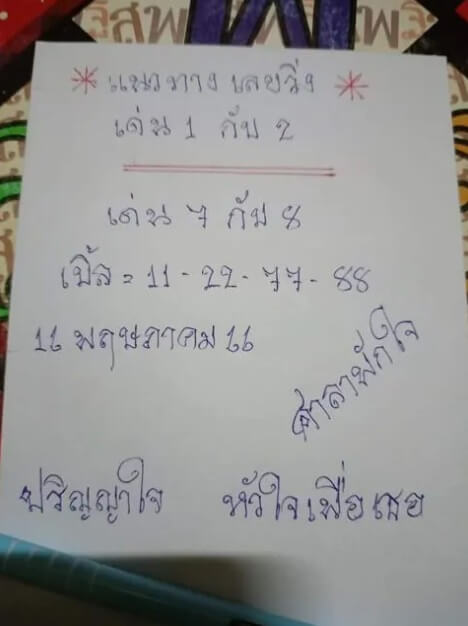 สิพ พ พ พิ
* แนวทาง เลขวิ่ง *
เด่น 1 กับ 2
เด่น 7 กับ 8
เบิ้ล = 11 - 22 - 77 - 88
16 พฤษภาคม 66
ศาลาพักใจ
ปริญญาใจ หัวใจเพื่อเธอ